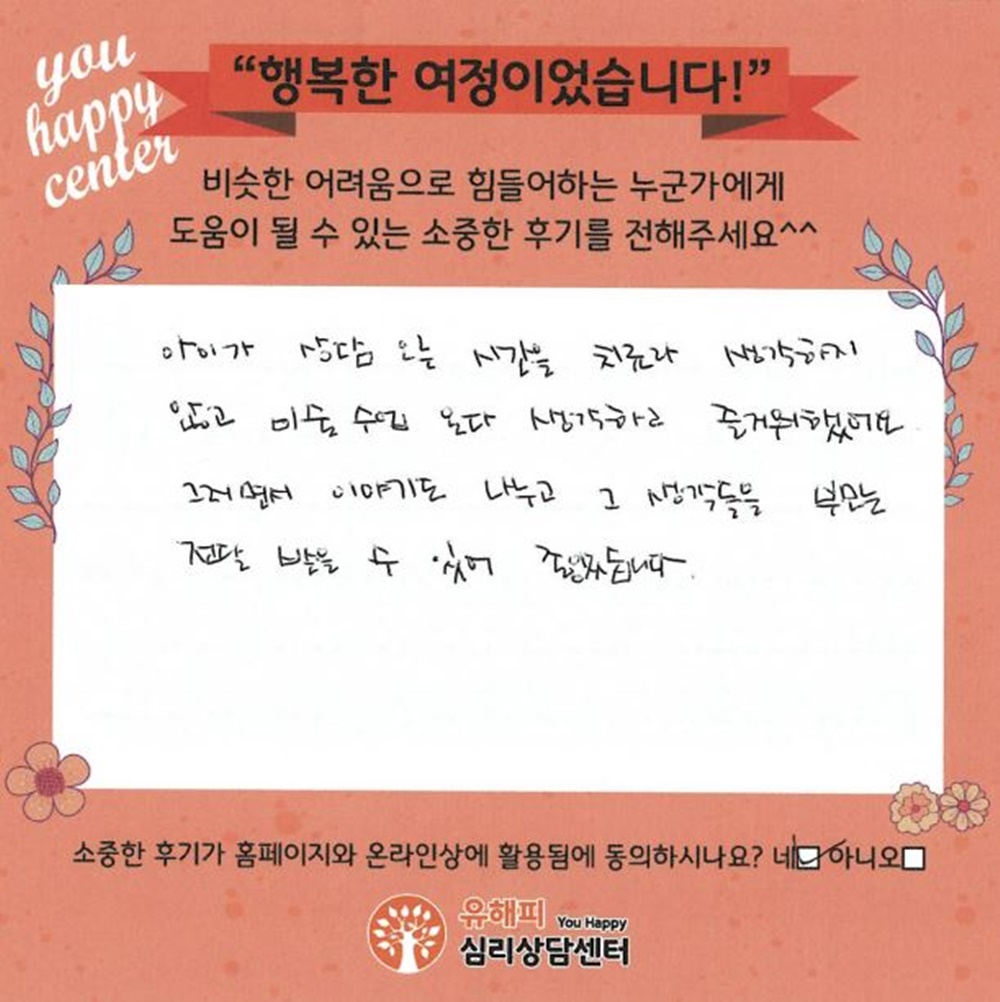 you
happy
center
“행복한 여정이었습니다!”
비슷한 어려움으로 힘들어하는 누군가에게
도움이 될 수 있는 소중한 후기를 전해주세요^^
아이가 상담 오는 시간을 치료라 생각하지
않고 미술 수업 온다 생각하고 즐거워했어요
그러면서 이야기도 나누고 그 생각들을 부모는
전달 받을 수 있어 좋았습니다.
소중한 후기가 홈페이지와 온라인상에 활용됨에 동의하시나요? 네 아니오
유해피 You Happy
심리상담센터